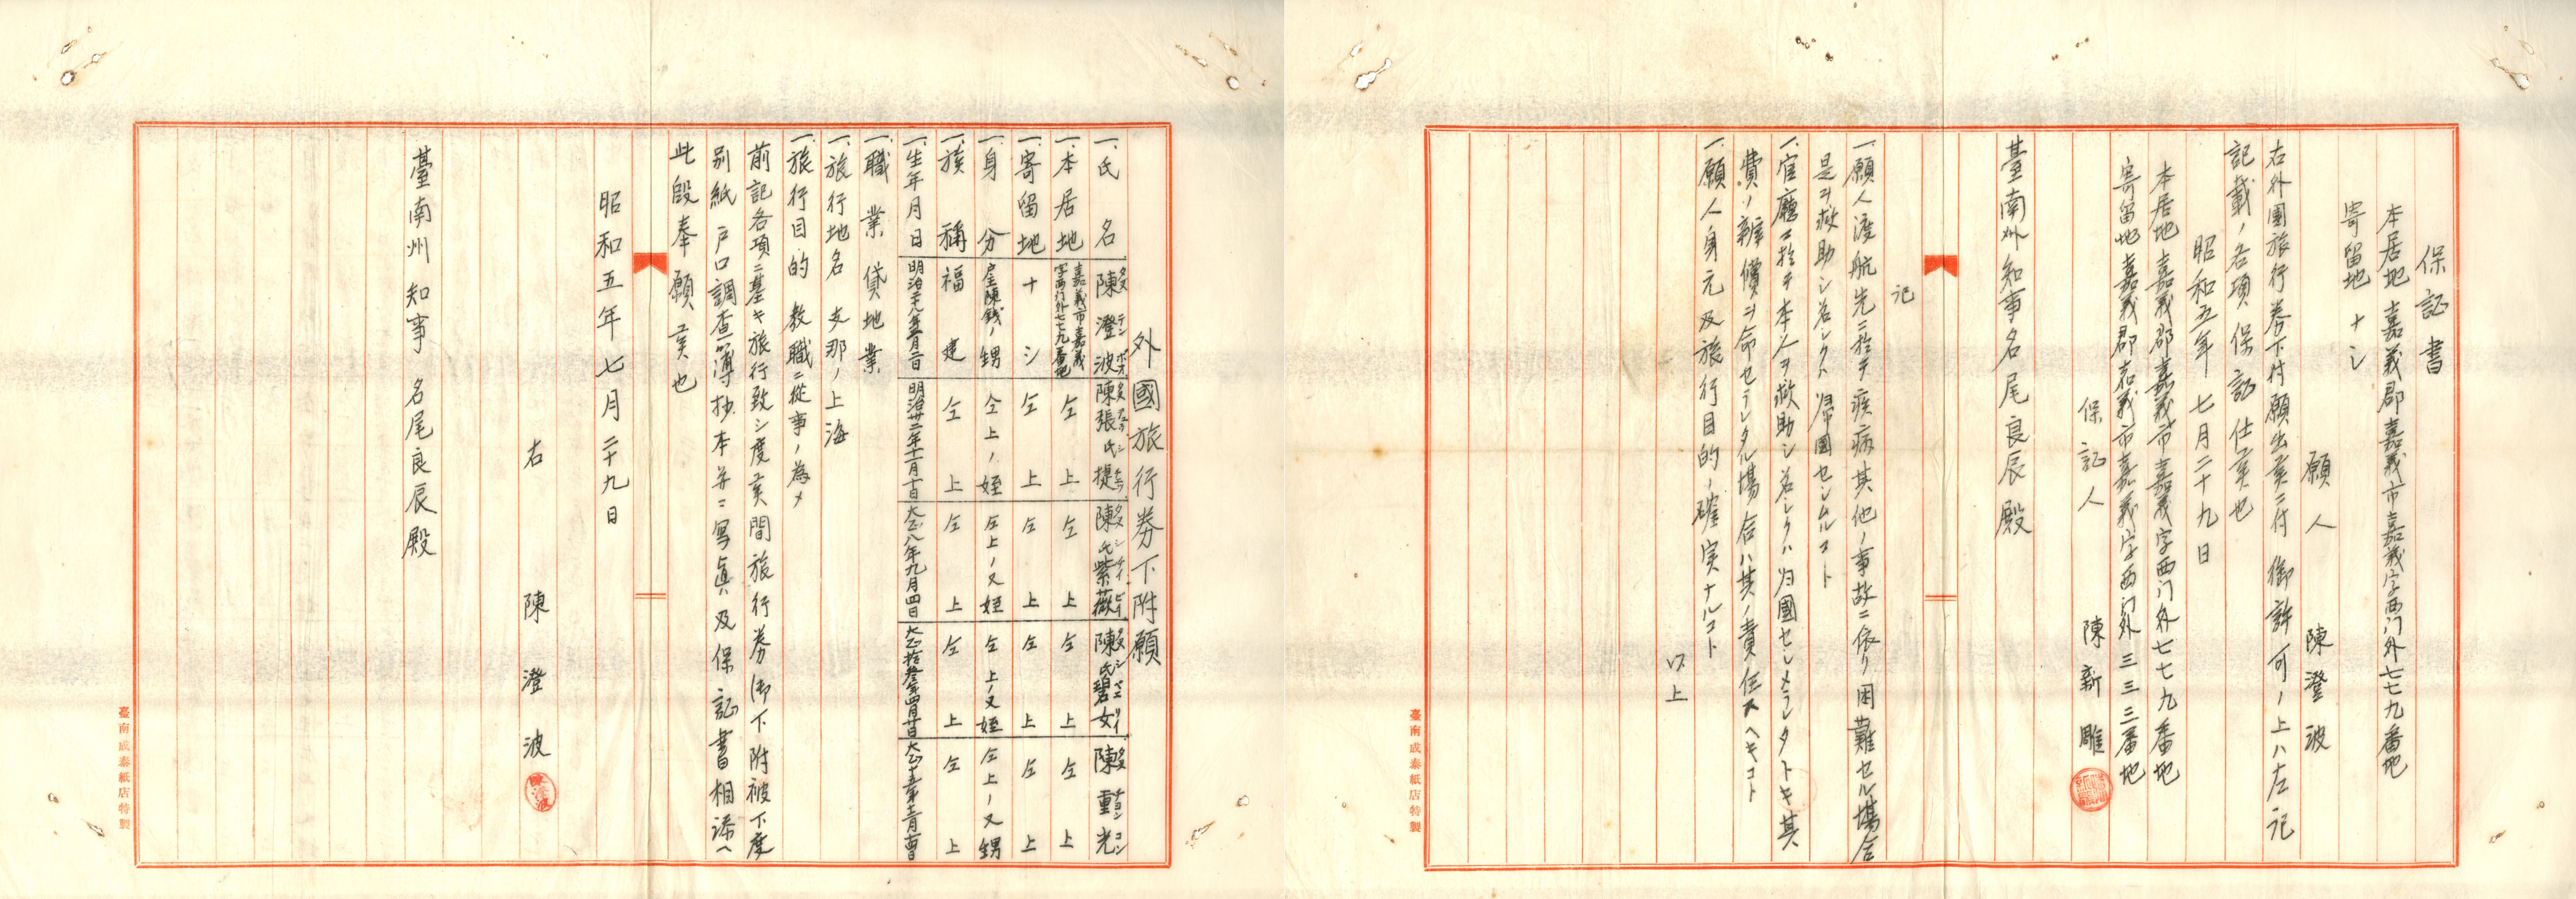 外國旅行券下附願
一、氏名 陳澄波 陳張氏捷 陳氏紫薇 陳氏碧女 陳重光
一、本居地 嘉義市嘉義字西門外七七九番地 仝上 仝上 仝上 仝上
一、寄留地 ナシ 仝上 仝上 仝上 仝上
一、身分 戸主陳錢ノ甥 仝上ノ姪 仝上ノ又姪 仝上ノ又姪 仝上ノ又甥
一、族稱 福建 仝上 仝上 仝上 仝上
一、生年月日 明治二十八年二月二日 明治卅二年十一月十日 大正八年九月四日 大正拾參年四月廿日
一、職業 貸地業
一、旅行地名 支那ノ上海
一、旅行目的 教職ニ從事ノ為メ
前記各項ニ基キ旅行致シ度候間旅行券御下附被下度
別紙戸口調査簿抄本并ニ写眞及保証書相添ヘ
此段奉願候也
昭和五年七月二十九日
右 陳澄波
臺南州知事 名尾良辰殿
臺南成泰紙店特製
保証書
本居地 嘉義郡嘉義市嘉義字西门外七七九番地
寄留地 ナシ
願人 陳澄波
右外國旅行券下付願出候ニ付御許可ノ上ハ左記
記載ノ各項保証仕候也
昭和五年七月二十九日
本居地 嘉義郡嘉義市嘉義字西门外七七九番地
寄留地 嘉義郡嘉義市嘉義字西门外三三三番地
保証人 陳新彫
臺南州知事名尾良辰殿
記
一、願人渡航先ニ於テ疾病其他ノ事故ニ依リ困難セル場合
是ヲ救助シ若シクハ帰國セシムルコト
一、官廳ニ於テ本人ヲ救助シ若シクハ归國セシメラレタトキ其
費ノ辨償ヲ命セラレタル場合ハ其ノ責任スヘキコト
一、願人身元及旅行目的ノ確実ナルコト
以上
臺南成泰紙店特製